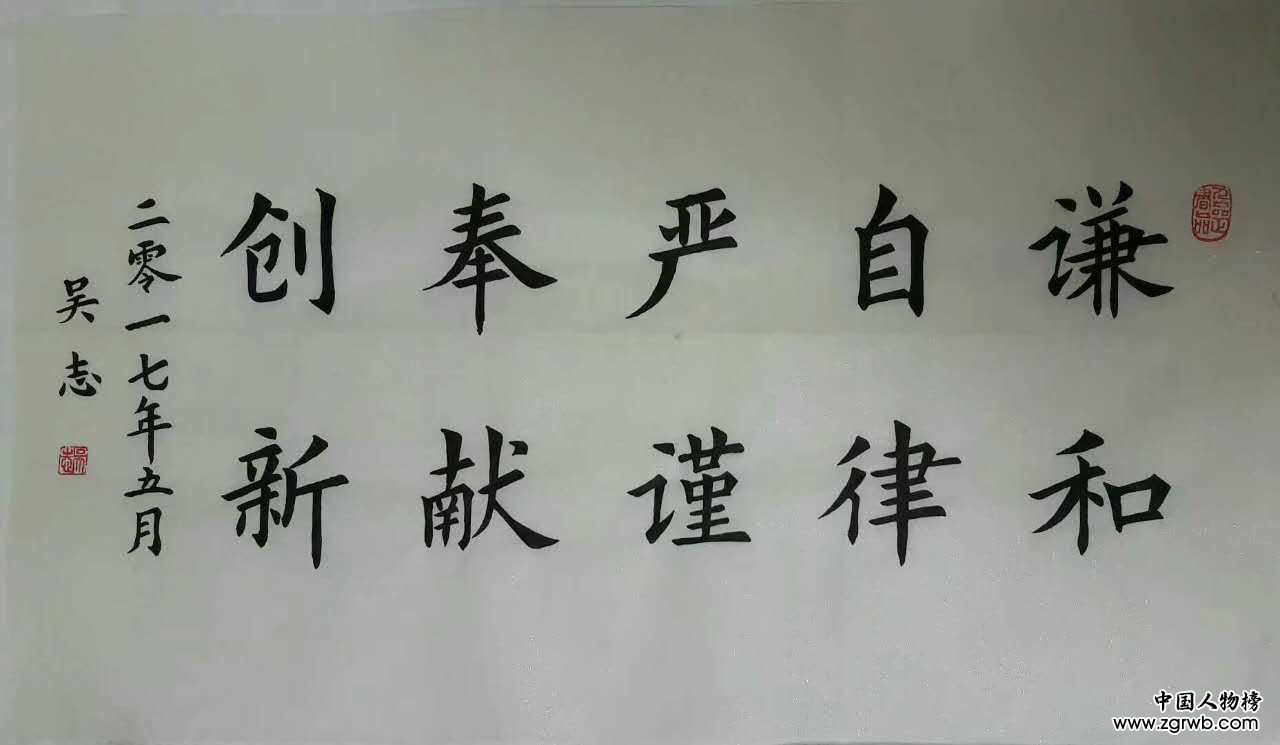 谦和
自律
严谨
奉献
创新
二零一七年五月
吴志
吴志
中国人物榜
www.zgrwb.com